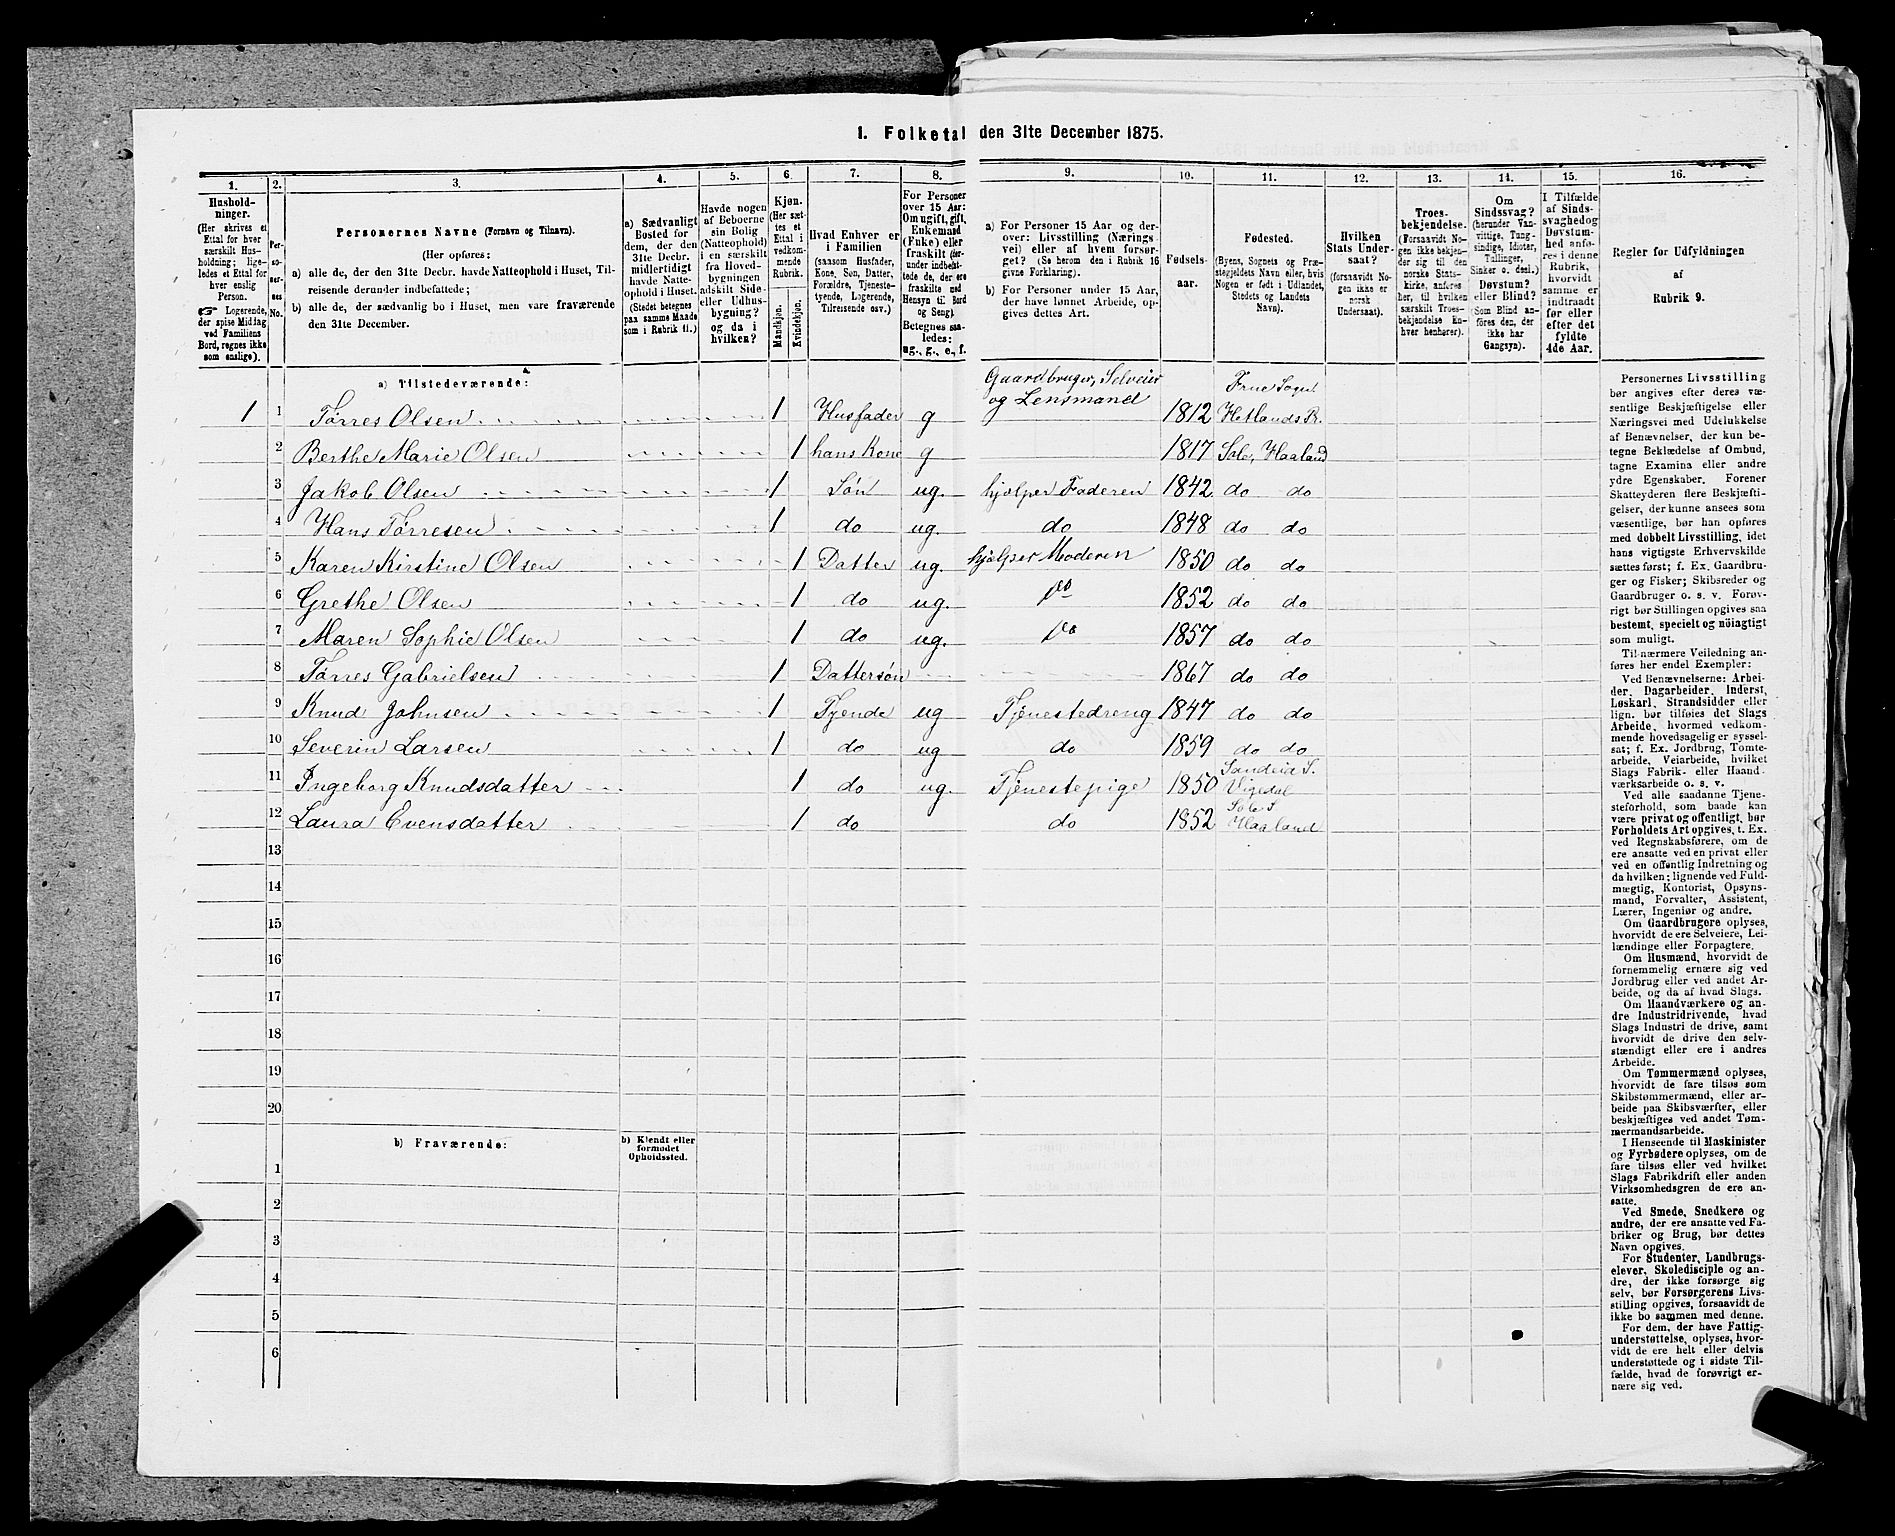 1. Folketal den 31te December 1875.
1. 2. 3. 4. 5. 6. 7. 8. 9. 10. 11. 12. 13. 14. 15. 16.
Husholdninger.
(Her skrives et
Ettal for hver
særskilt Husholdning;
ligeledes et Ettal for
hver enslig
Person.
Logerende,
der spise Middag
ved Familiens
Bord, regnes ikke
som enslige).
Personernes No.
Personernes Navne (Fornavn og Tilnavn).
(Her opføres:
a) alle de, der den 31te Decbr. havde Natteophold i Huset, Tilreisende
derunder indbefattede;
b) alle de, der sædvanlig bo i Huset, men vare fraværende
den 31te December.
a) Sædvanligt
Bosted for
dem, der den
31te Decbr.
midlertidigt
havde Natteophold
i Huset.
(Stedet betegnes
paa samme Maade
som i Rubrik 11.)
Havde nogen
af Beboerne
sin Bolig
(Natteophold)
i en særskilt
fra Hovedbygningen
adskilt Side-
eller Udhusbygning?
og da i
hvilken?
Kjøn.
(Her sættes
et
Ettal i
vedkommende
Rubrik.
Mandkjøn.
Kvindekjøn.
Hvad Enhver er
i Familien
(saasom Husfader,
Kone, Søn, Datter,
Forældre, Tjenestetyende,
Logerende,
Tilreisende osv.)
For Personer
over 15 Aar:
Om ugift, gift,
Enkemand
(Fuke) eller
fraskilt (herunder
indbefattede
de, der ere
fraskilte med
Hensyn til Bord
og Seng).
Betegnes saaledes:
ug., g., e., f.
a) For Personer 15 Aar og derover:
Livsstilling (Næringsvei)
eller af hvem forsørget?
(Se herom den i Rubrik 16
givne Forklaring).
b) For Personer under 15 Aar,
der have lønnet Arbeide, opgives
dettes Art.
Fødselsaar.
Fødested.
(Byens, Sognets og Præstegjeldets
Navn eller, hvis
Nogen er født i Udlandet,
Stedets og Landets
Navn).
Hvilken
Stats Undersaat?
(forsaavidt Nogen
ikke er
norsk
Undersaat).
Troesbekjendelse.
(Forsaavidt Nogen
ikke bekjender
sig til den
norske Statskirke,
anføres
her, til hvilken
særskilt Troesbekjendelse
Enhver
henhører).
Om
Sindssvag?
(herunder Vanvittige,
Tungsindige,
Idioter,
Tullinger,
Sinker o. desl.)
Døvstum?
eller Blind?
(Som Blind anføres
den, der
ikke har
Gangsyn).
I Tilfælde
af Sindssvaghed
og
Døvstumhed
anføres
i denne
Rubrik,
hvorvidt
samme er
indtraadt
før eller
efter det
fyldte
4de Aar.
Regler for Udfyldningen
af
Rubrik 9.
a) Tilstedeværende:
1 1 Tørres Olsen 1 Husfader g Gaardbruger, Selveier og Lensmand 1812 Frue Sogn Hetlands Pr.
2 Berthe Marie Olsen 1 hans Kone g 1817 Sole, Haaland
3 Jakob Olsen 1 Søn ug. hjælper Faderen 1842 do do
4 Hans Tørresen 1 do ug. do 1848 do do
5 Karen Kirstine Olsen 1 Datter ug. hjælper Moderen 1850 do do
6 Grethe Olsen 1 do ug. do 1852 do do
7 Maren Sophie Olsen 1 do ug. do 1857 do do
8 Tørres Gabrielsen 1 Dattersøn 1867 do do
9 Knud Johnsen 1 Tyende ug Tjenestedreng 1847 do do
10 Severin Larsen 1 do ug do 1859 do do
11 Ingeborg Knudsdatter 1 do ug. Tjenestepige 1850 Sandeid S. Vigedal
12 Laura Evensdatter 1 do do 1852 Sole S. Haaland
13
14
15
16
17
18
19
20
b) Fraværende:
b) Kjendt eller
formodet
Opholdssted.
1
2
3
4
5
6
Personernes Livsstilling
bør angives efter deres væsentlige
Beskjæftigelse eller
Næringsvei med Udelukkelse
af Benævnelser, der kun betegne
Beklædelse af Ombud,
tagne Examina eller andre
ydre Egenskaber. Forener
Skatteyderen flere Beskjæftigelser,
der kunne ansees som
væsentlige, bør han opføres
med dobbelt Livsstilling, idet
hans vigtigste Erhvervskilde
sættes først; f. Ex. Gaardbruger
og Fisker; Skibsreder og
Gaardbruger o. s. v. Forøvrigt
bør Stillingen opgives saa
bestemt, specielt og nöiagtigt
som muligt.
Til nærmere Veiledning anføres
her endel Exempler:
Ved Benævnelserne: Arbeider,
Dagarbeider, Inderst,
Løskarl, Strandsidder eller
lign. bør tilføies det Slags
Arbeide, hvormed vedkommende
hovedsagelig er sysselsat;
f. Ex. Jordbrug, Tomtearbeide,
Veiarbeide, hvilket
Slags Fabrik- eller Haandværksarbeide
o. s. v.
Ved alle saadanne Tjenesteforhold,
som baade kan
være privat og offentligt, bør
Forholdets Art opgives, t. Ex.
ved Regnskabsførere, om de
ere ansatte ved en privat eller
ved en offentlig Indretning og
da hvilken; lignende ved Fuldmægtig,
Kontorist, Opsynsmand,
Forvalter, Assistent,
Lærer, Ingeniør og andre.
Om Gaardbrugere oplyses,
hvorvidt de ere Selveiere, Leilændinge
eller Forpagtere.
Om Husmænd, hvorvidt de
fornemmelig ernære sig ved
Jordbrug eller ved andet Arbeide,
og da af hvad Slags.
Om Haandværkere og andre
Industridrivende, hvad
Slags Industri de drive, samt
hvorvidt de drive den selvstændigt
eller ere i andres
Arbeide.
Om Tømmermænd oplyses,
hvorvidt de fare tilsøs som
Skibstømmermænd, eller arbeide
paa Skibsværfter, eller
beskjæftiges ved andet Tømmermandsarbeide.
I Henseende til Maskinister
og Fyrbødere oplyses, om de
fare tilsøs eller ved hvilket
Slags Fabrikdrift eller anden
Virksomhedsgren de ere ansatte.
Ved Smede, Snedkere og
andre, der ere ansatte ved Fabriker
og Brug, bør dettes
Navn opgives.
For Studenter, Landbrugselever,
Skoledisciple og andre,
der ikke forsørge sig
selv, bør Forsørgerens Livsstilling
opgives, forsaavidt de
ikke bo sammen med denne.
For dem, der have Fattigunderstøttelse,
oplyses, hvorvidt
de ere helt eller delvis
understøttede og i sidste Tilfælde,
hvad de forøvrigt ernære
sig ved.